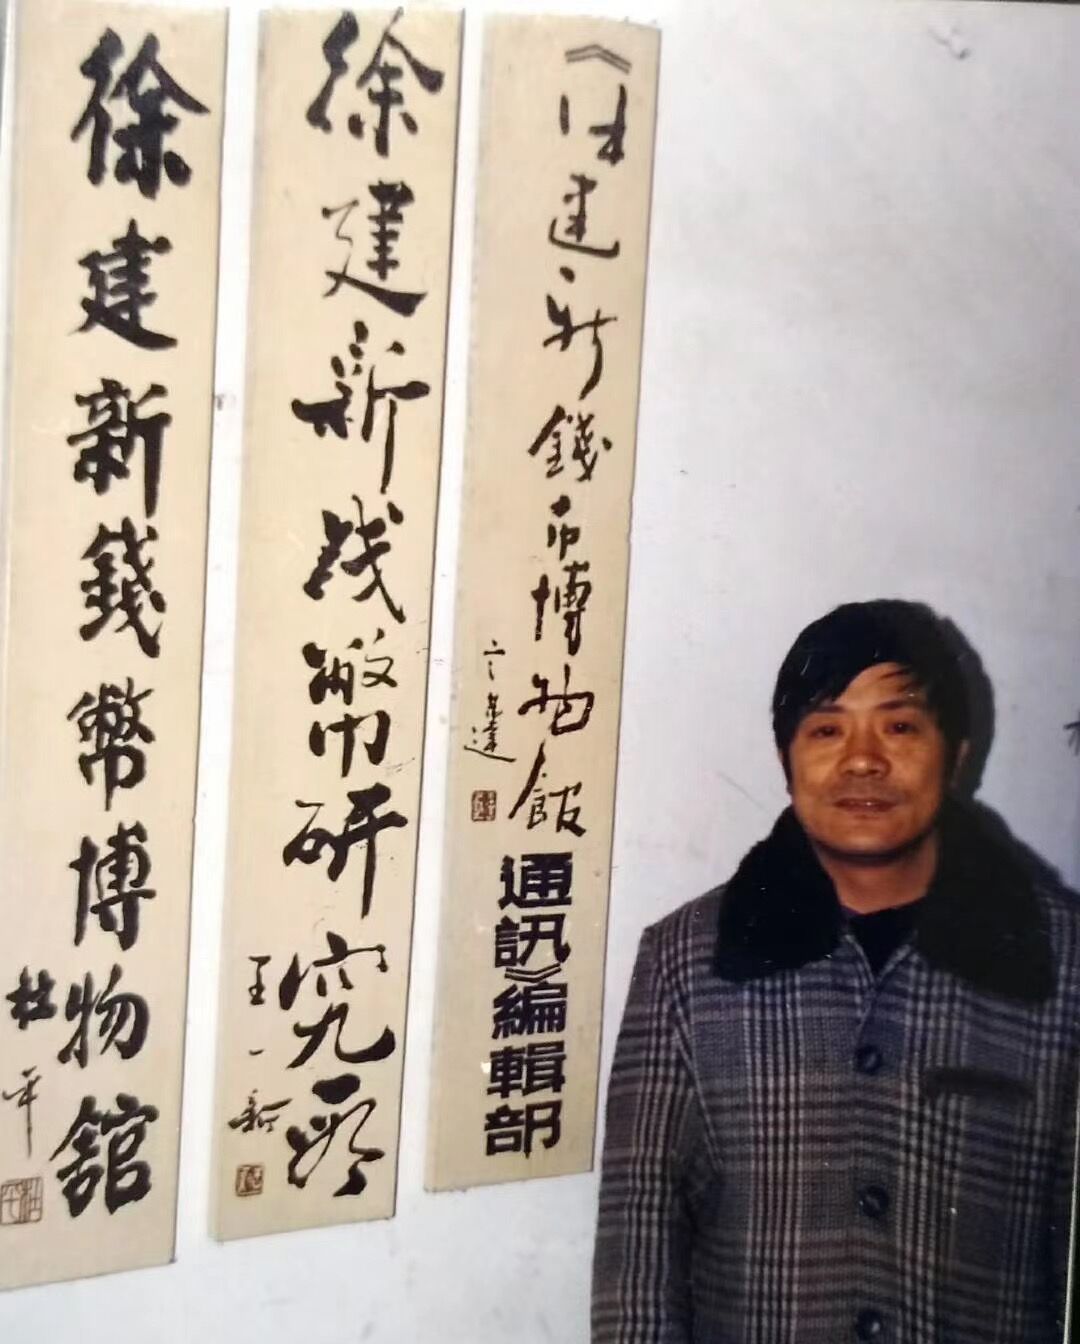 徐建新錢幣博物館
杜平
徐建新钱幣研究所
王一新
《徐建新錢币博物館通訊》編輯部